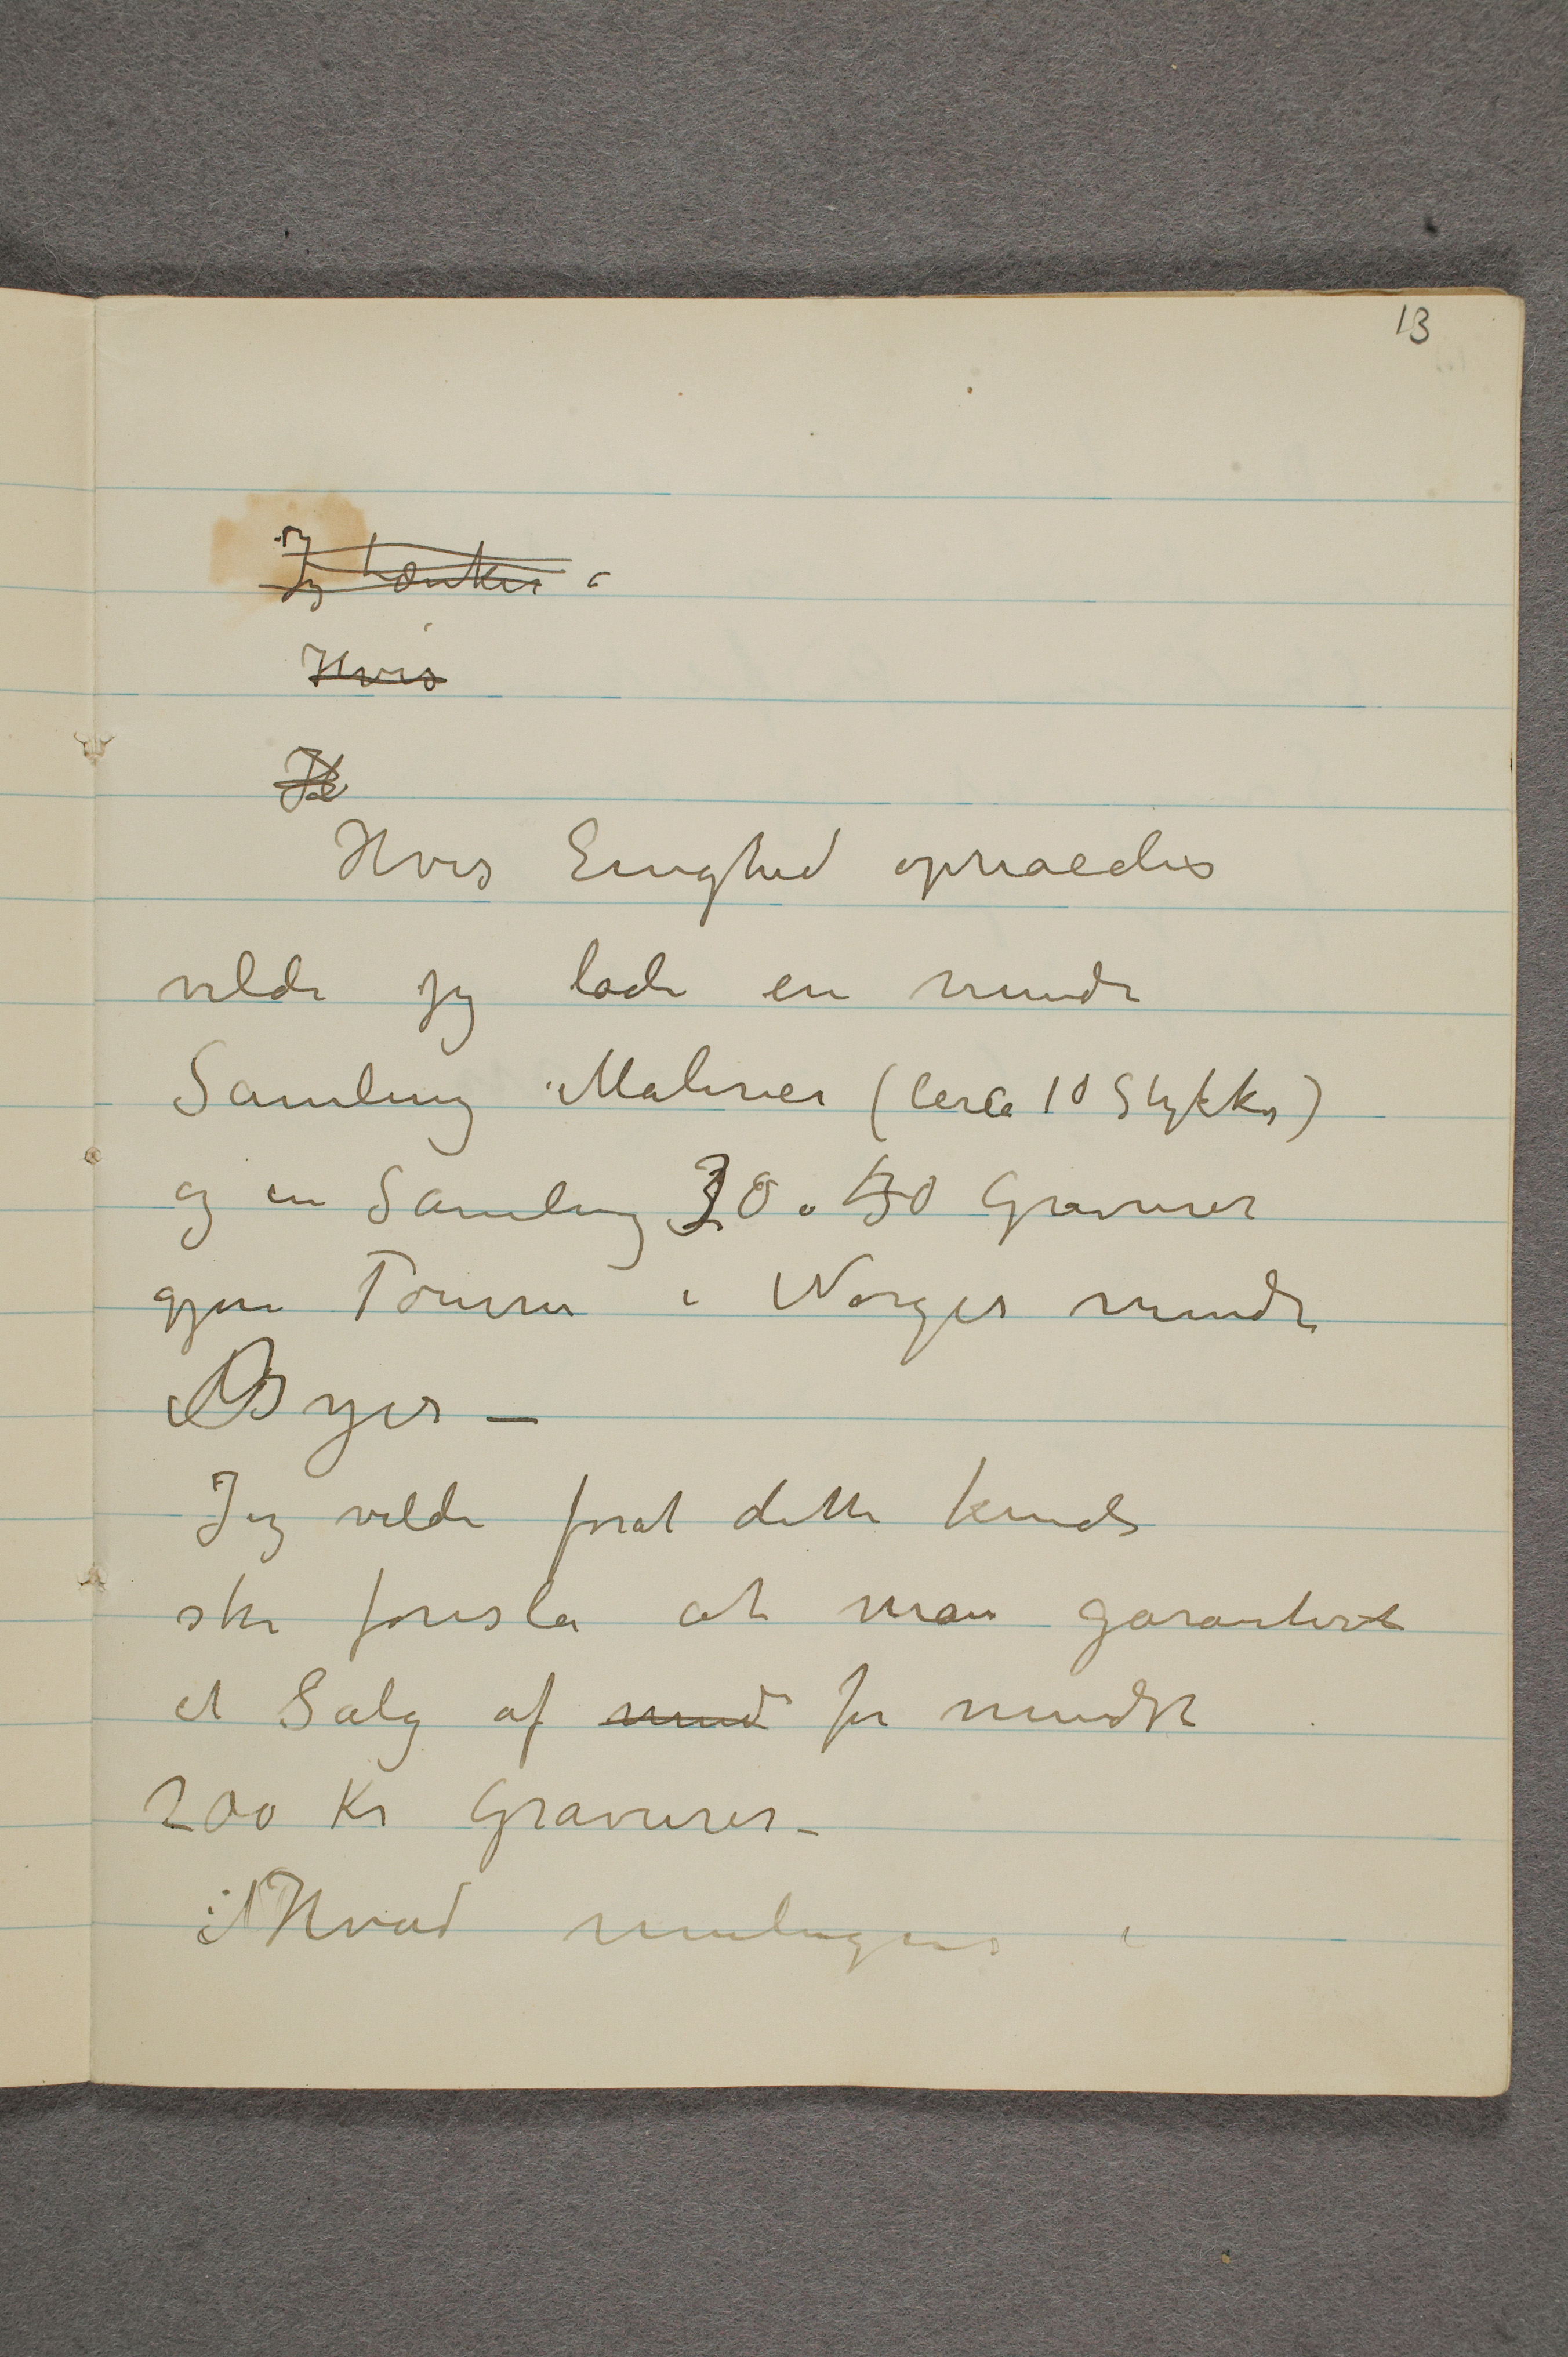 13
Jeg tænker a
Hvis
Je
Hvis Enighed opnaaedes
vilde jeg lade en mindre
Samling Malerier (Cirka 10 Stykker)
og en Samling 30 a 40 Gravurer
gjøre Tourne i Norges mindre
Byer –
Jeg vilde forat dette kunde
ske foreslå at man garanterte
et Salg af mind for mindst
200 Kr Gravurer –
Hvad muligens i